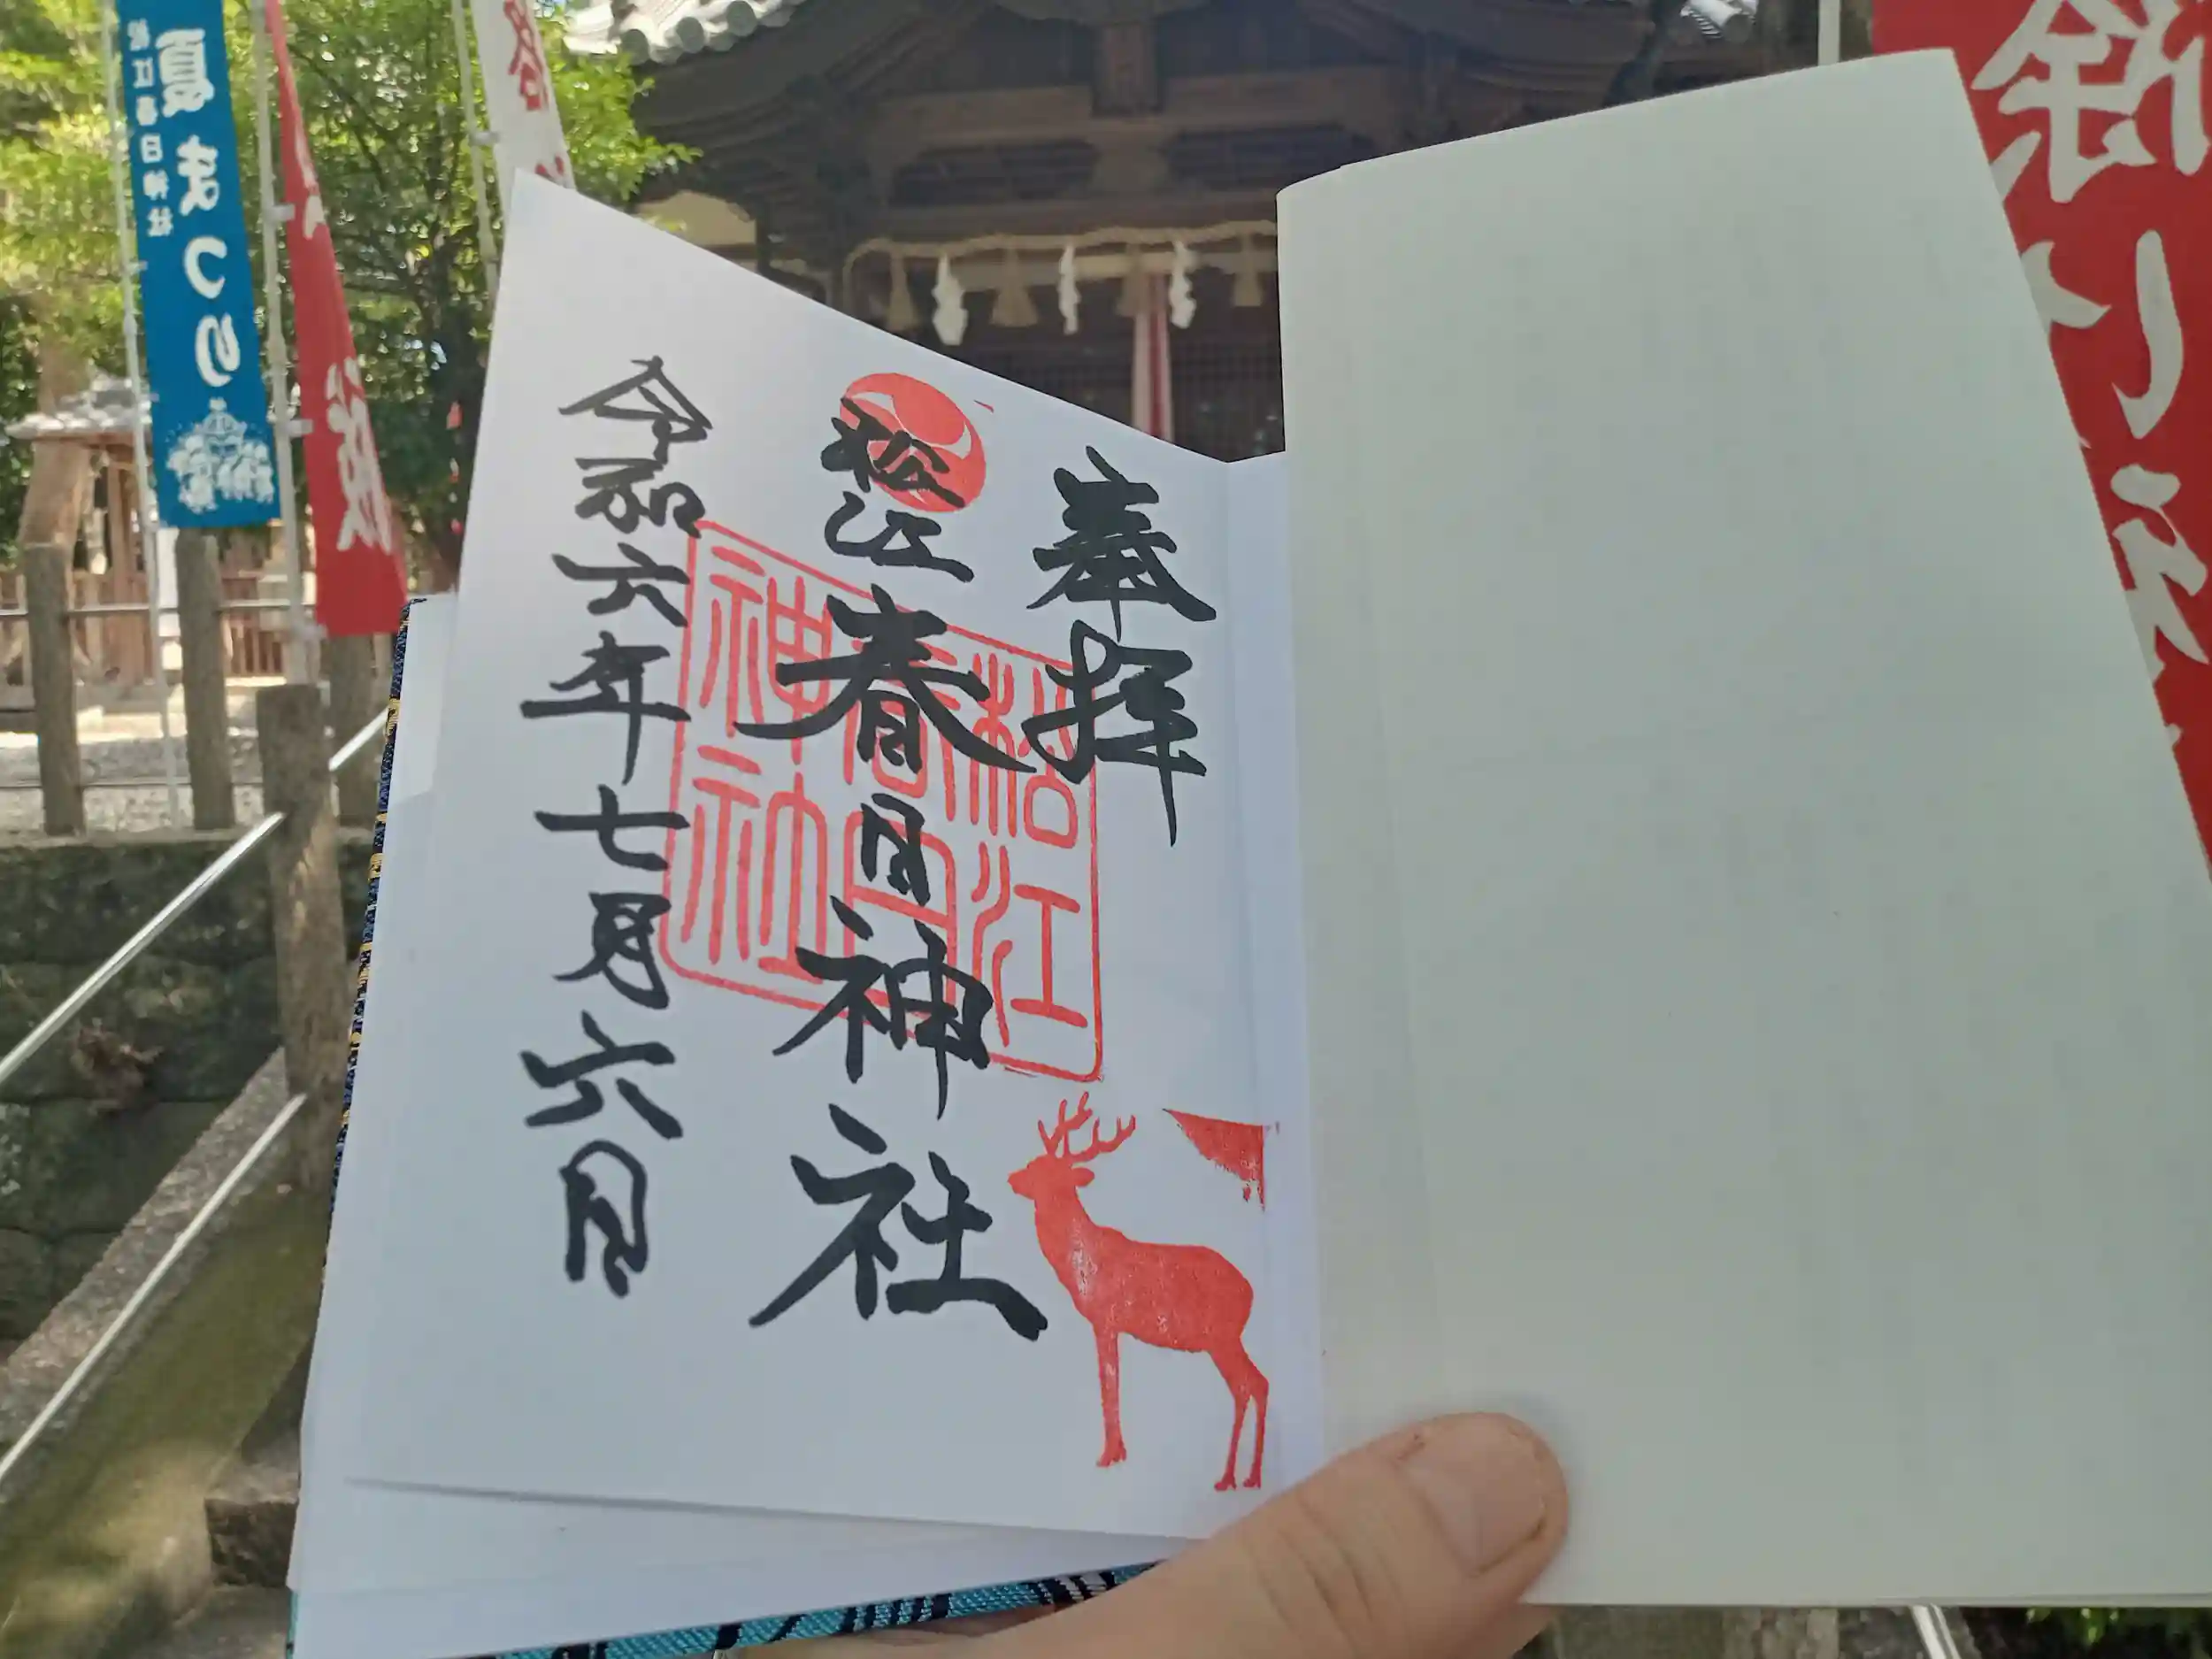 奉拝
松江春日神社
令和六年七月六日
松江
春日
神社
夏まつり
松江春日神社